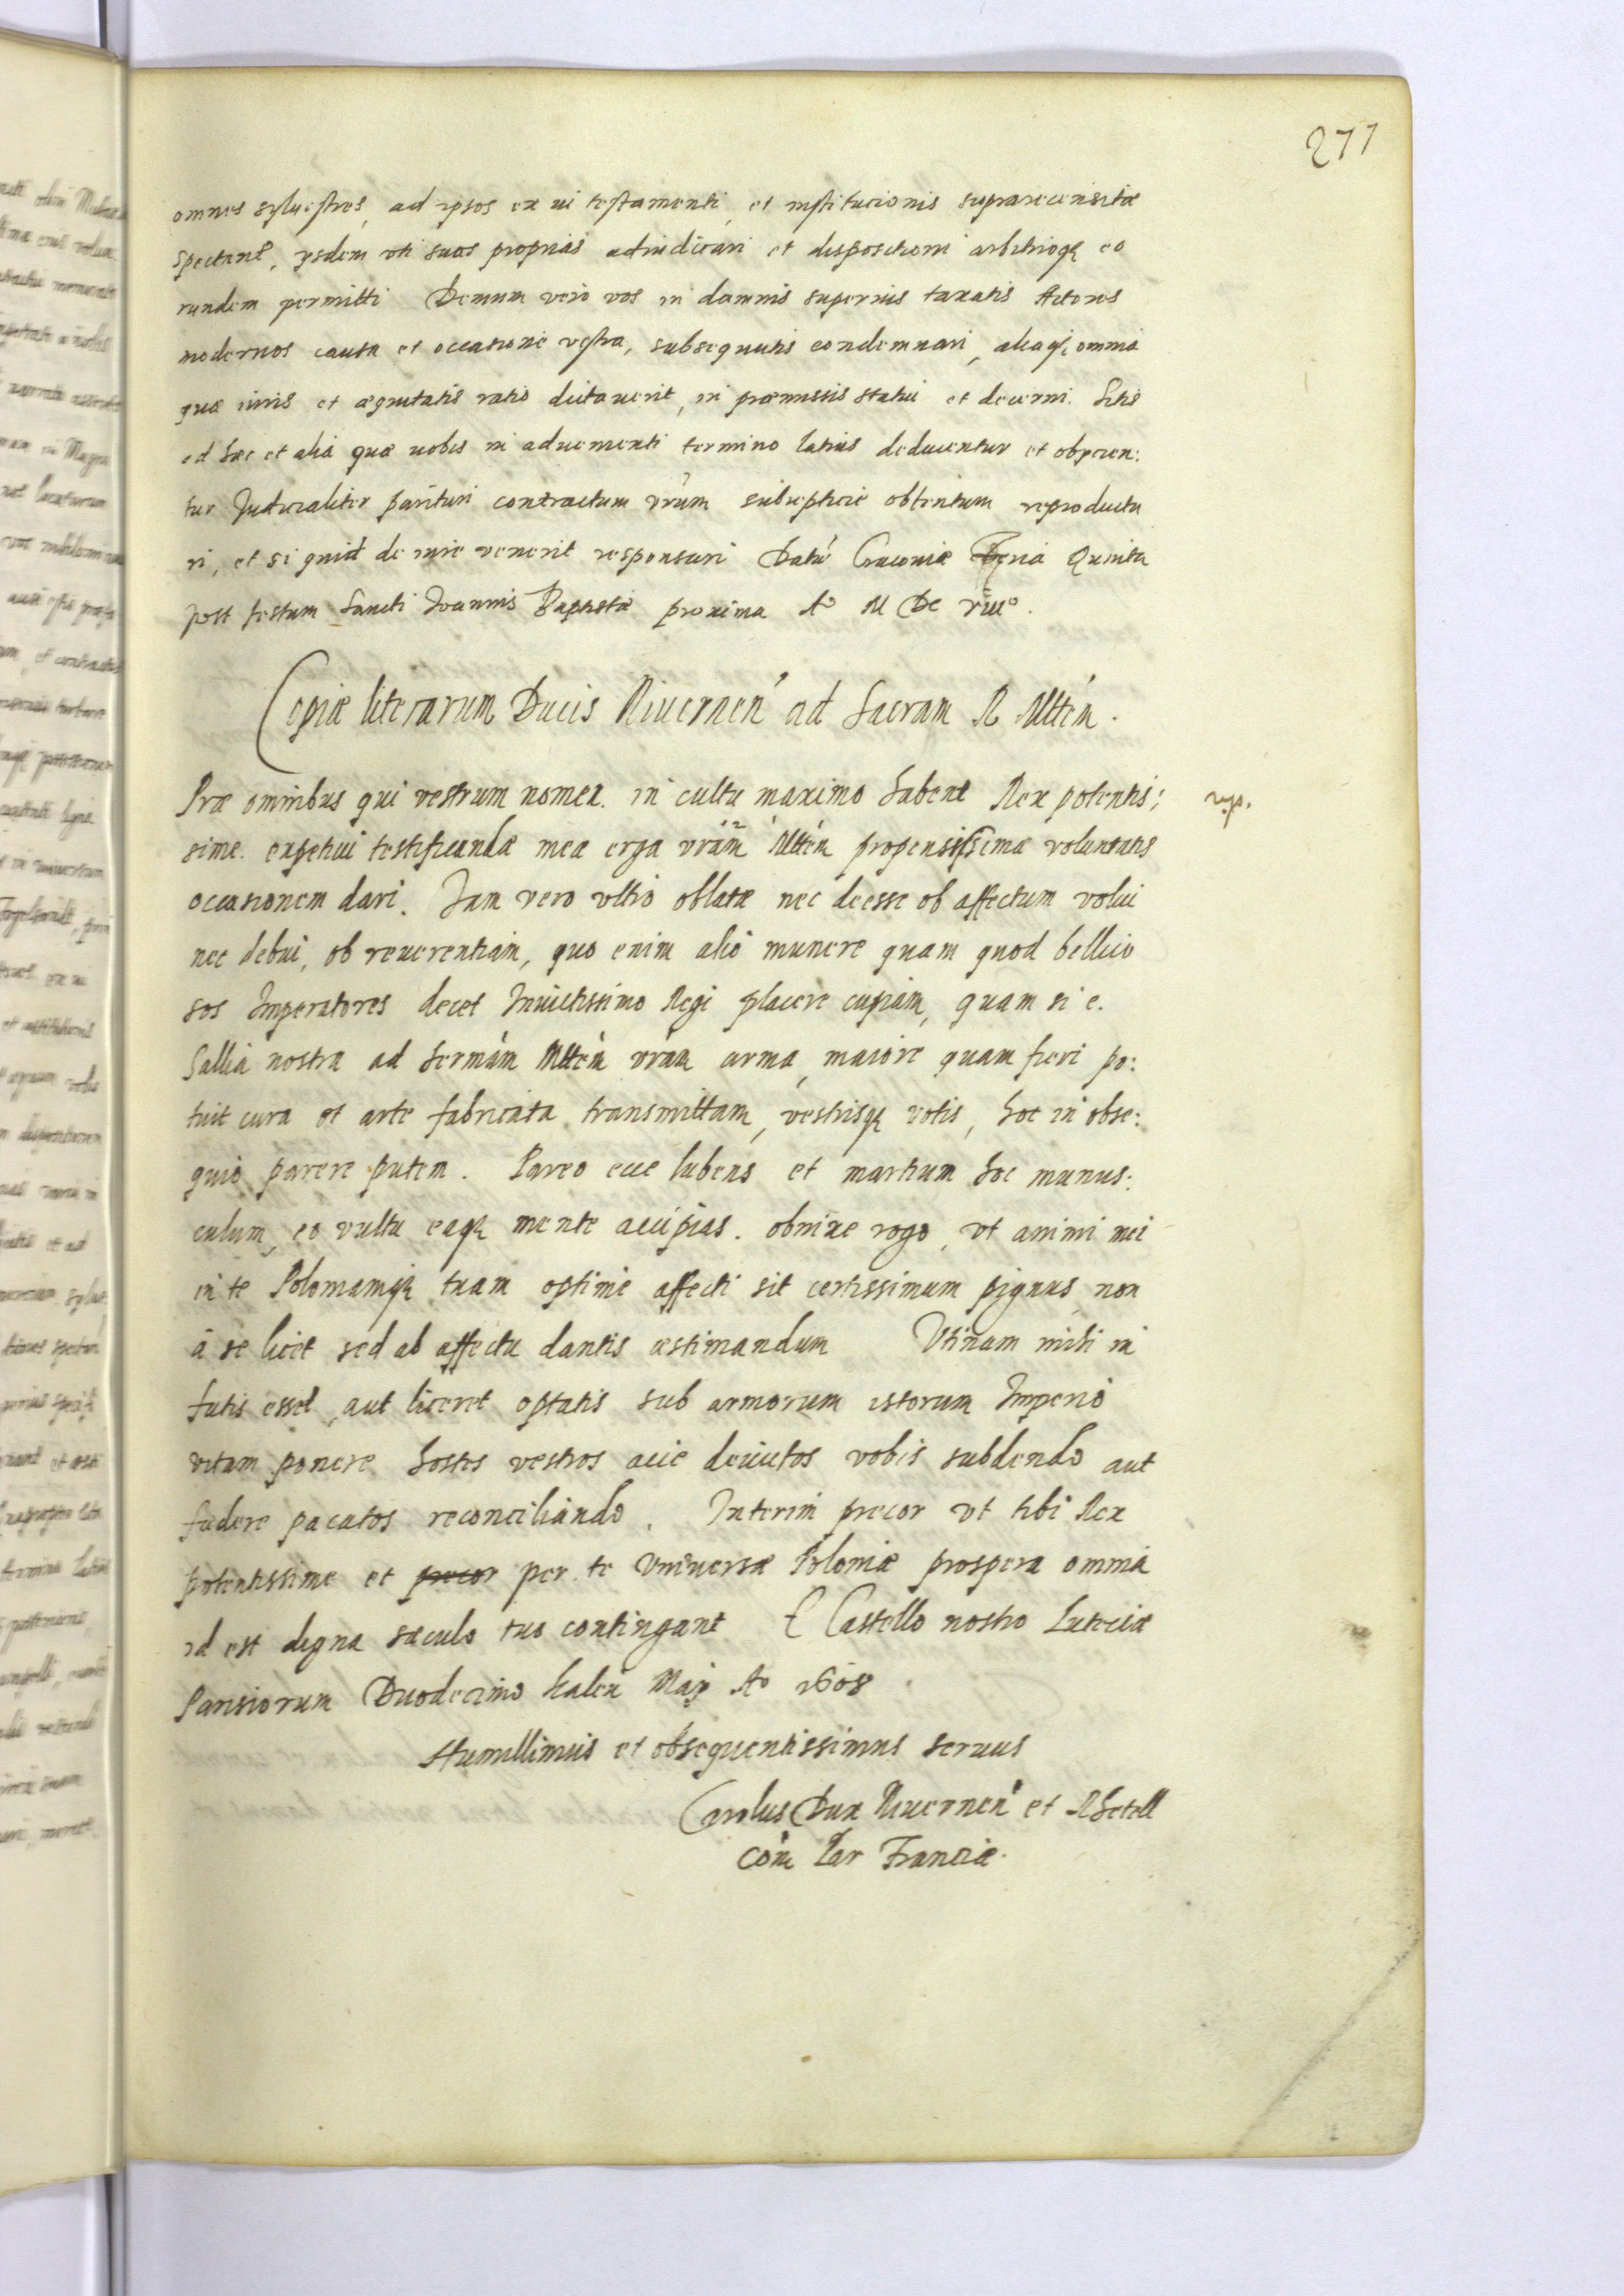 277
omnes sylvestres, ad ipsos ex vi testamenti, et institucionis suprarecensitæ
spectant, ijsdem vti suas proprias adiudicari et dispositioni arbitrioq; eo
rundem permitti Demum vero vos in damnis superius taxatis Actores
modernos causa et occasione vestra, subsequutis condemnari, aliaq; omnia
quæ iuris et æquitatis ratio dictauerit, in præmissis statui et decerni. Sitis
ad hæc et alia quæ vobis in aduenienti termino latius deducentur et obijcien:
tur Judicialiter parituri contractum vr̃um subrepticie obtentum reproductu
ri, et si quid de iure venerit responsuri Datũ Cracouiæ Feria Quinta
post festum Sancti Joannis Baptistæ proxima Aº M DC viiiº.
Copiæ literarum Ducis Niuernen̄ ad Sacram R Mttem̄.
Præ omnibus qui vestrum nomen. in cultu maximo habent Rex potentis:
sime. expetiui testificandæ meæ erga vr̃am Mttem̄ propensissimæ voluntatis
occasionem dari. Jam vero vltro oblatæ nec deesse ob affectum volui
nec debui, ob reuerentiam, quo enim alio munere quam quod bellico
sos Imperatores decet Inuictissimo Regi placere cupiam, quam si e.
Gallia nostra ad Sermãm Mttem̄ vr̃am arma, maiore quam fieri po:
tuit cura et arte fabricata transmittam, vestrisq; votis, hoc in obse:
quio parere putem. Pareo ecce lubens et martium hoc munus:
culum, eo vultu eaq; mente accipias. obnixe rogo, vt animi mei
in te Poloniamq; tuam optime affecti sit certissimum pignus non
à se licet sed ab affectu dantis æstimandum Vtinam mihi in
fatis esset, aut liceret optatis sub armorum istorum Imperio
vitam ponere hostes vestros acie deuictos vobis subdendo aut
fædere pacatos reconciliando. Interim precor vt tibi Rex
potentissime et precor per te Vniuersæ Poloniæ prospera omnia
id est digna sæculo tuo contingant E Castello nostro Luteciæ
Parisiorum Duodecimo kalen̄ Maij Aº 1608
Humillimus et obsequentissimus seruus
Carolus Dux Niuernen̄ et Rhetell
Com̄ Par Franciæ.